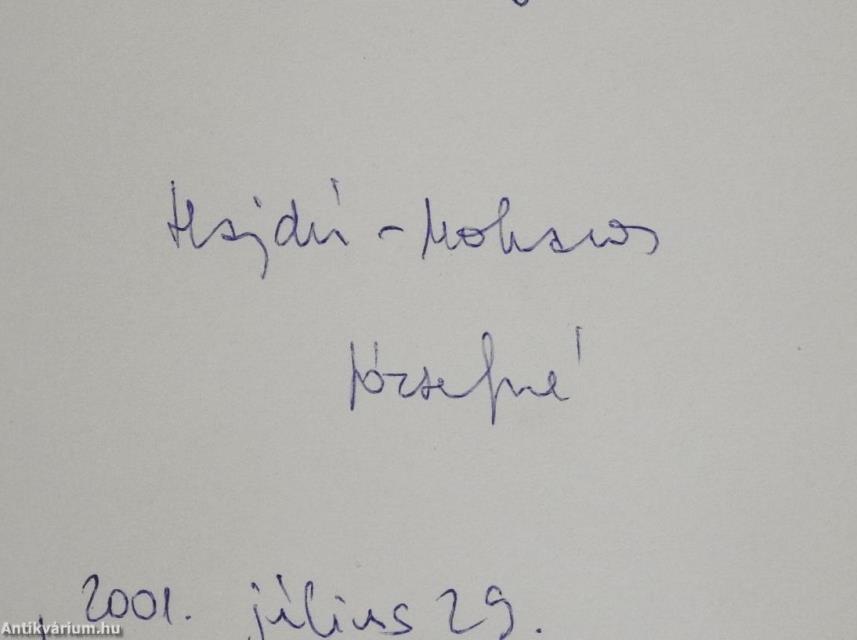 Hajdú-Moharos
Józsefné
2001. július 29.
Antikvárium.hu